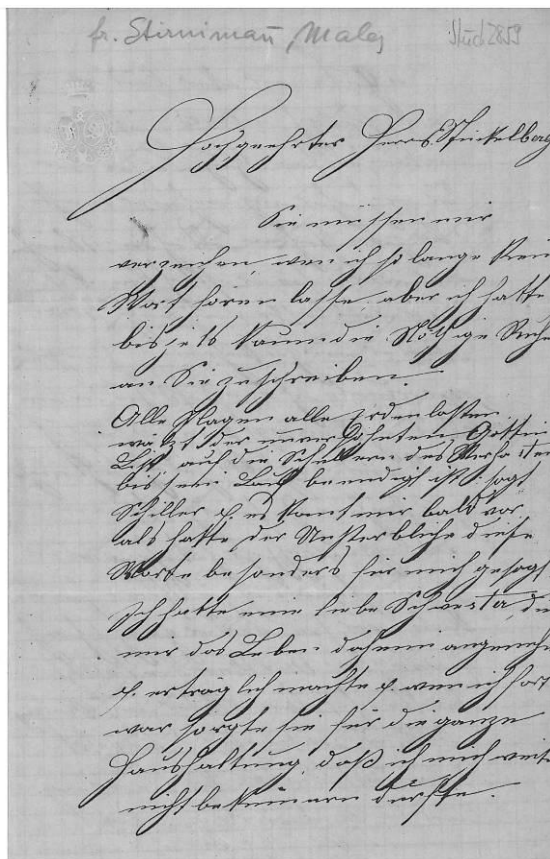 fr. Stirnimañ Maler
Hochgeehrter Herr E. Stückelberg
Sie müssen mir
verzeihen, wen ich so lange kein
Wort hören lasse, aber ich hatte
bis jetz kaum die Nöthige Ruhe
an Sie zuschreiben.
Alle Plagen alle Erden lasten
wälzt der unversöhnten Göttin
List auf die Schultern des Verhaßten
bis sein Lauf beendigt ist. sagt
Schiller & es komt mir bald vor
als hätte der Unsterbliche diese
Worte besonders für mich gesagt
Ich hatte eine liebe Schwester, die
mir das Leben daheim angenehm
& erträglich machte & wen ich fort
war sorgte sie für die ganze
Haushaltung, daß ich mich weit
nicht bekümern durfte.